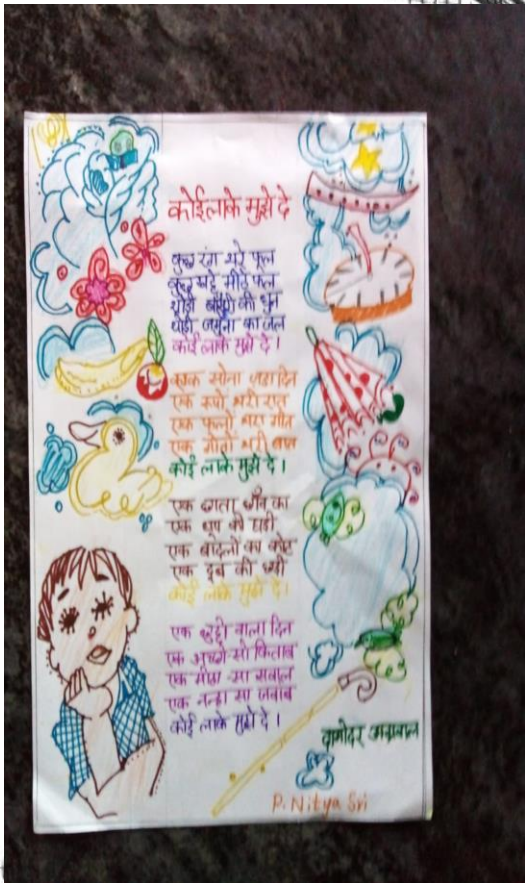 कोई लाके मुझे दे
कुछ रंग भरे फूल
कुछ खट्टे मीठे फल
थोड़ी बाँसुरी की धुन
थोड़ी जमुना का जल
कोई लाके मुझे दे।
एक सोना जड़ा दिन
एक रूपों भरी रात
एक फूलों भरा गीत
एक गीतों भरी बात
कोई लाके मुझे दे।
एक छाता छाँव का
एक धूप की घड़ी
एक बादलों का कोट
एक दूब की छड़ी
कोई लाके मुझे दे।
एक छुट्टी वाला दिन
एक अच्छी सी किताब
एक मीठा सा सवाल
एक नन्हा सा जवाब
कोई लाके मुझे दे।
दामोदर अग्रवाल
P. Nitya Sri